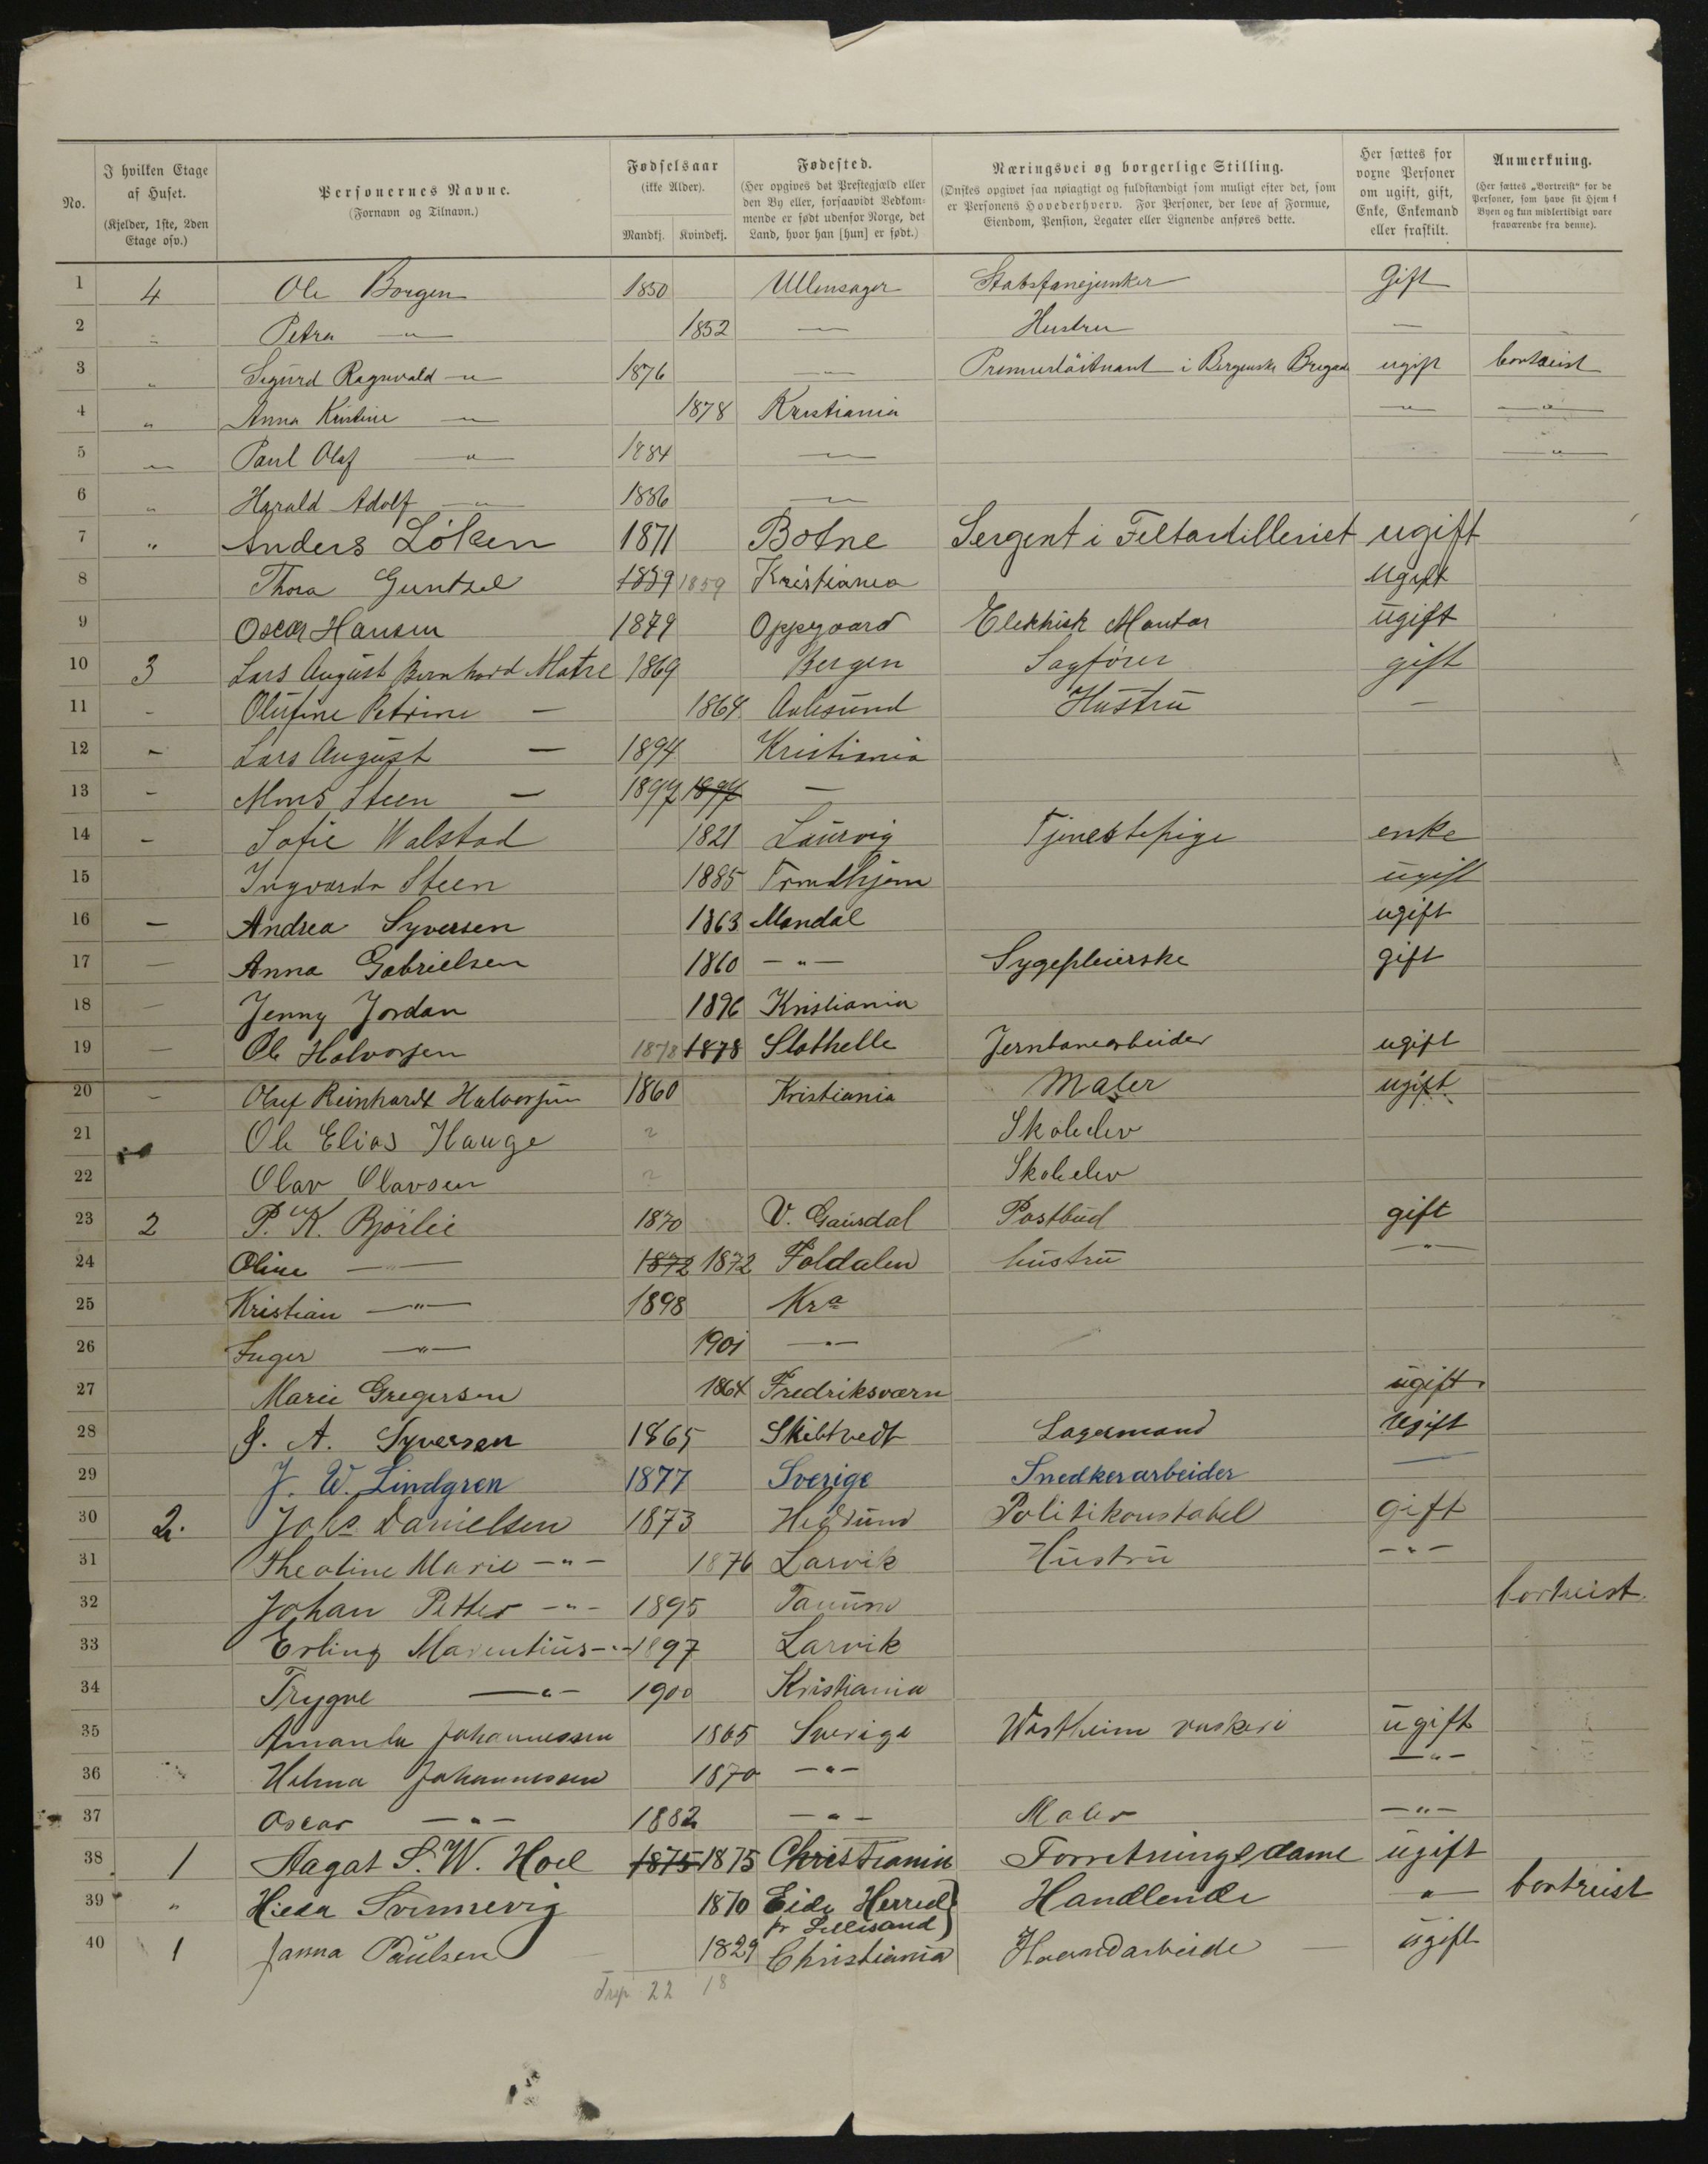 No.
I hvilken Etage af Huset. (Kjelder, 1ste, 2den Etage osv.)
Personernes Navne. (Fornavn og Tilnavn.)
Fødselsaar (ikke Alder). Mandkj. Kvindekj.
Fødested. (Her opgives det Prestegjæld eller den By eller, forsaavidt Vedkommende er født udenfor Norge, det Land, hvor han [hun] er født.)
Næringsvei og borgerlige Stilling. (Ønskes opgivet saa nøiagtigt og fuldstændigt som muligt efter det, som er Personens Hovederhverv. For Personer, der leve af Formue, Eiendom, Pension, Legater eller Lignende anføres dette.
Her sættes for voxne Personer om ugift, gift, Enke, Enkemand eller fraskilt.
Anmerkning. (Her sættes „Bortreist" for de Personer, som have sit Hjem i Byen og kun midlertidigt vare fraværende fra denne).
1 4 Ole Borgen 1850 Ullensager Stabsfanejunker Gift
2 " Petra -"- 1852 -"- Hustru -"-
3 " Sigurd Ragnvald -"- 1876 -"- Premierløitnant i Bergenske Brigade ugift bortreist
4 " Anna Kristine -"- 1878 Kristiania -"- -"-
5 -"- Paul Olaf -"- 1884 -"- -"-
6 " Harald Adolf -"- 1886 -"-
7 " Anders Löken 1871 Botne Sergent i Feltartilleriet ugift
8 Thora Guntzel 1859 1859 Kristiania Ugift
9 Oscar Hansen 1879 Oppegaard Elektrisk Montør ugift
10 3 Lars August Bernhard Matre 1869 Bergen Sagfører gift
11 - Olufine Petrine - 1864 Aalesund Hustru -
12 - Lars August - 1894 Kristiania
13 - Mons Steen - 1897 1897 -
14 - Sofie Walstad 1821 Laurvig Tjenestepige enke
15 Ingvarda Steen 1885 Trondhjem ugift
16 - Andrea Syversen 1863 Mandal ugift
17 - Anna Gabrielsen 1860 -"- Sygepleierske gift
18 - Jenny Jordan 1896 Kristiania
19 - Ole Halvorsen 1878 1878 Slathelle Jernbanearbeider ugift
20 - Olaf Reinhardt Halvorsen 1860 Kristiania Maler ugift
21 Ole Elias Hauge ? Skoleelev
22 Olav Olavsen ? Skoleelev
23 2 P. K. Bjørlie 1870 V. Gausdal Postbud gift
24 Oline -"- 1872 1872 Foldalen hustru -"-
25 Kristian -"- 1898 Kra
26 Inger -"- 1901 -"-
27 Marie Gregersen 1864 Fredriksværn ugift
28 J. A. Syversen 1865 Skibtvedt Lagermand Ugift
29 J. W. Lindgren 1877 Sverige Snedkerarbeider -
30 2. Johs. Danielsen 1873 Hedrum Politikonstabel gift
31 Theoline Marie -"- 1876 Larvik Hustru -"-
32 Johan Petter -"- 1895 Tanum bortreist
33 Erling Marentius -"- 1897 Larvik
34 Trygve -"- 1900 Kristiania
35 Amanda Johannessen 1865 Sverige Wastheim vaskeri ugift
36 Hilma Johannessen 1870 -"- -"-
37 Oscar -"- 1882 -"- Maler -"-
38 1 Aagat S. W. Hoel 1875 1875 Christiania Forretningsdame ugift
39 " Hilda Svennevig 1870 Eide Herred pr Lillesand) Handlende -"- bortreist
40 1 Janna Paulsen 1829 Christiania Haandarbeide - ugift
22 18